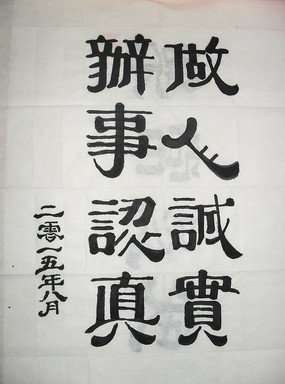 做人誠實
辦事認真
二零一五年八月